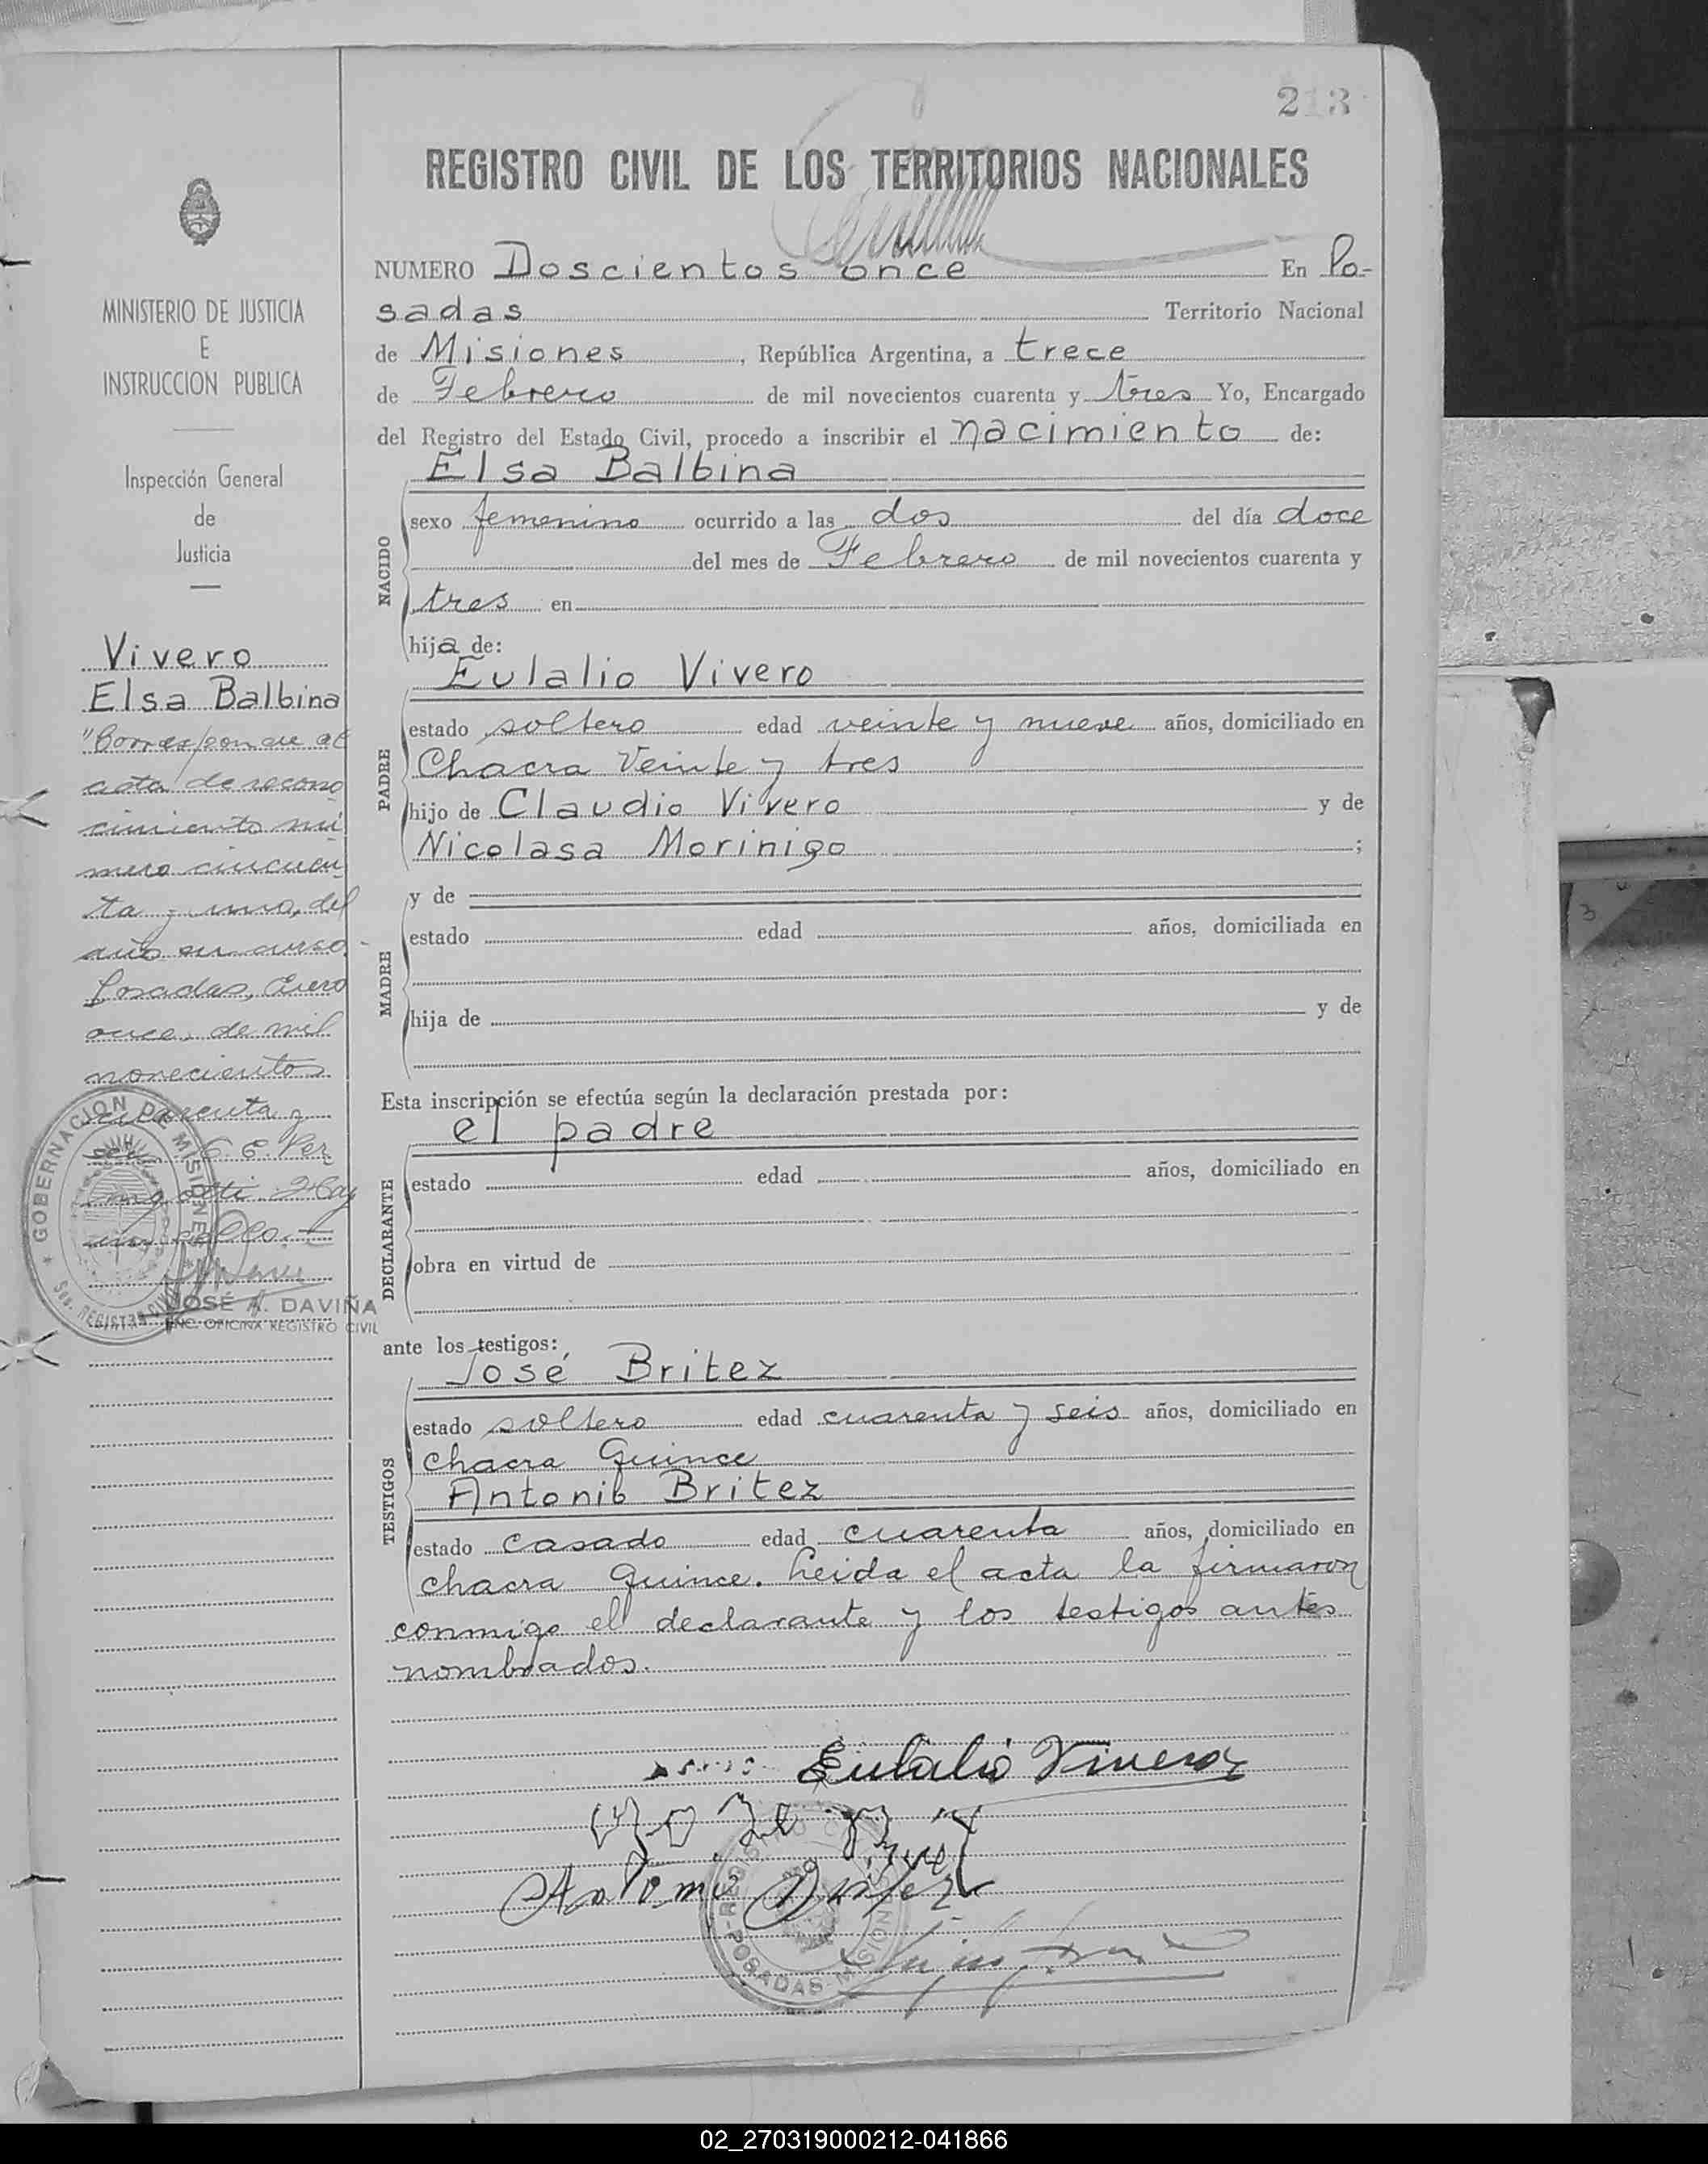 213
REGISTRO CIVIL DE LOS TERRITORIOS NACIONALES
NUMERO Doscientos once En Po-
sadas Territorio Nacional
de Misiones, República Argentina, a trece
de Febrero de mil novecientos cuarenta y tres Yo, Encargado
del Registro del Estado Civil, procedo a inscribir el nacimiento de:
Elsa Balbina
NACIDO
sexo femenino ocurrido a las dos del día doce
del mes de Febrero de mil novecientos cuarenta y
tres en
hija de:
Eulalio Vivero
PADRE
estado soltero edad veinte y nueve años, domiciliado en
Chacra Veinte y tres
hijo de Claudio Vivero y de
Nicolasa Morinigo ;
MADRE
y de
estado edad años, domiciliada en
hija de y de
Esta inscripción se efectúa según la declaración prestada por:
el padre
DECLARANTE
estado edad años, domiciliado en
obra en virtud de
ante los testigos:
José Britez
TESTIGOS
estado soltero edad cuarenta y seis años, domiciliado en
chacra Quince
Antonio Britez
estado casado edad cuarenta años, domiciliado en
chacra Quince. Leida el acta la firmaron
conmigo el declarante y los testigos antes
nombrados.
Eulalio Vivero
Antonio Britez
POSADAS-MISIONES
MINISTERIO DE JUSTICIA
E
INSTRUCCION PUBLICA
Inspección General
de
Justicia
Vivero
Elsa Balbina
"Corresponde al
acta de recono
cimiento nú
mero cincuen
ta y uno, del
año en curso.
Posadas, Enero
once, de mil
novecientos
cuarenta y
GOBERNACION DE MISIONES
REGISTRO CIVIL
JOSÉ A. DAVIÑA
ENC. OFICINA REGISTRO CIVIL
3
02_270319000212-041866